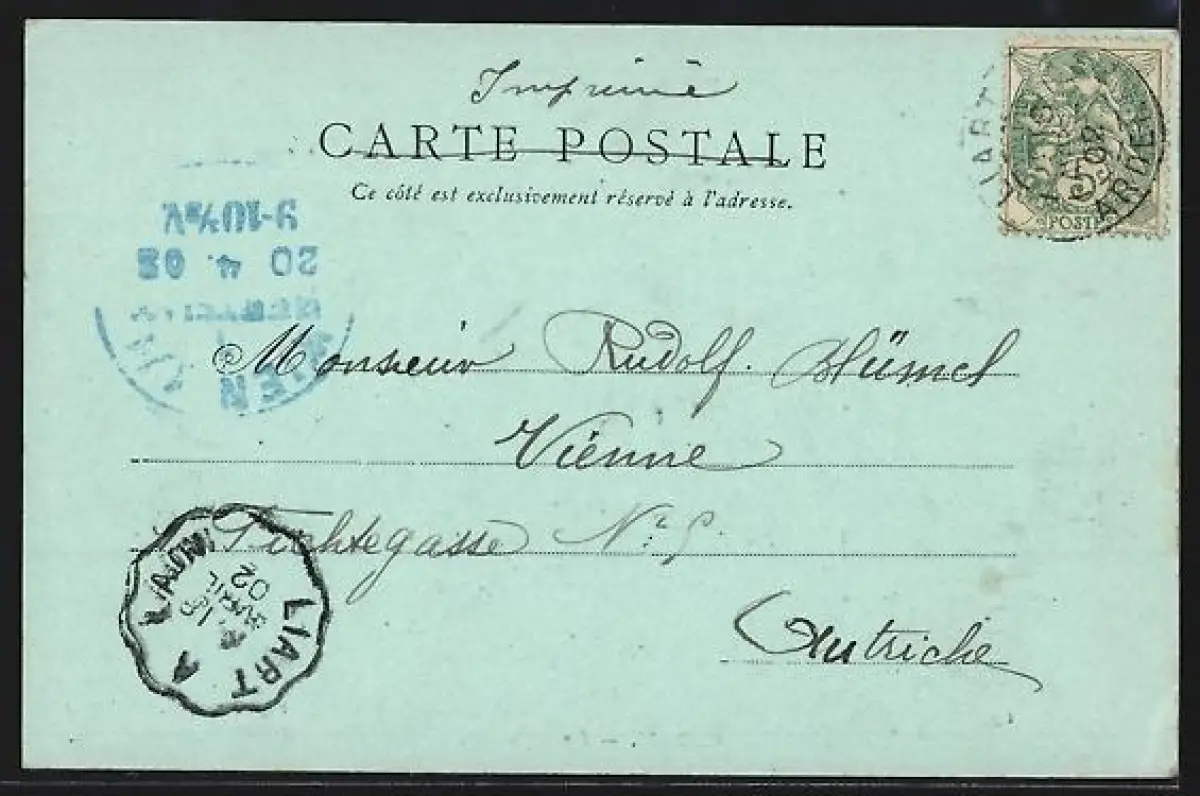 Imprimé
CARTE POSTALE
Ce côté est exclusivement réservé à l'adresse.
LIART
ARDEN
02
5
POSTE
9-10½V
20 4. 02
WIEN
Monsieur Rudolf Blümel
Vienne
Fichtegasse No 5
Autriche
LAON
LIART
AVRIL
02
A